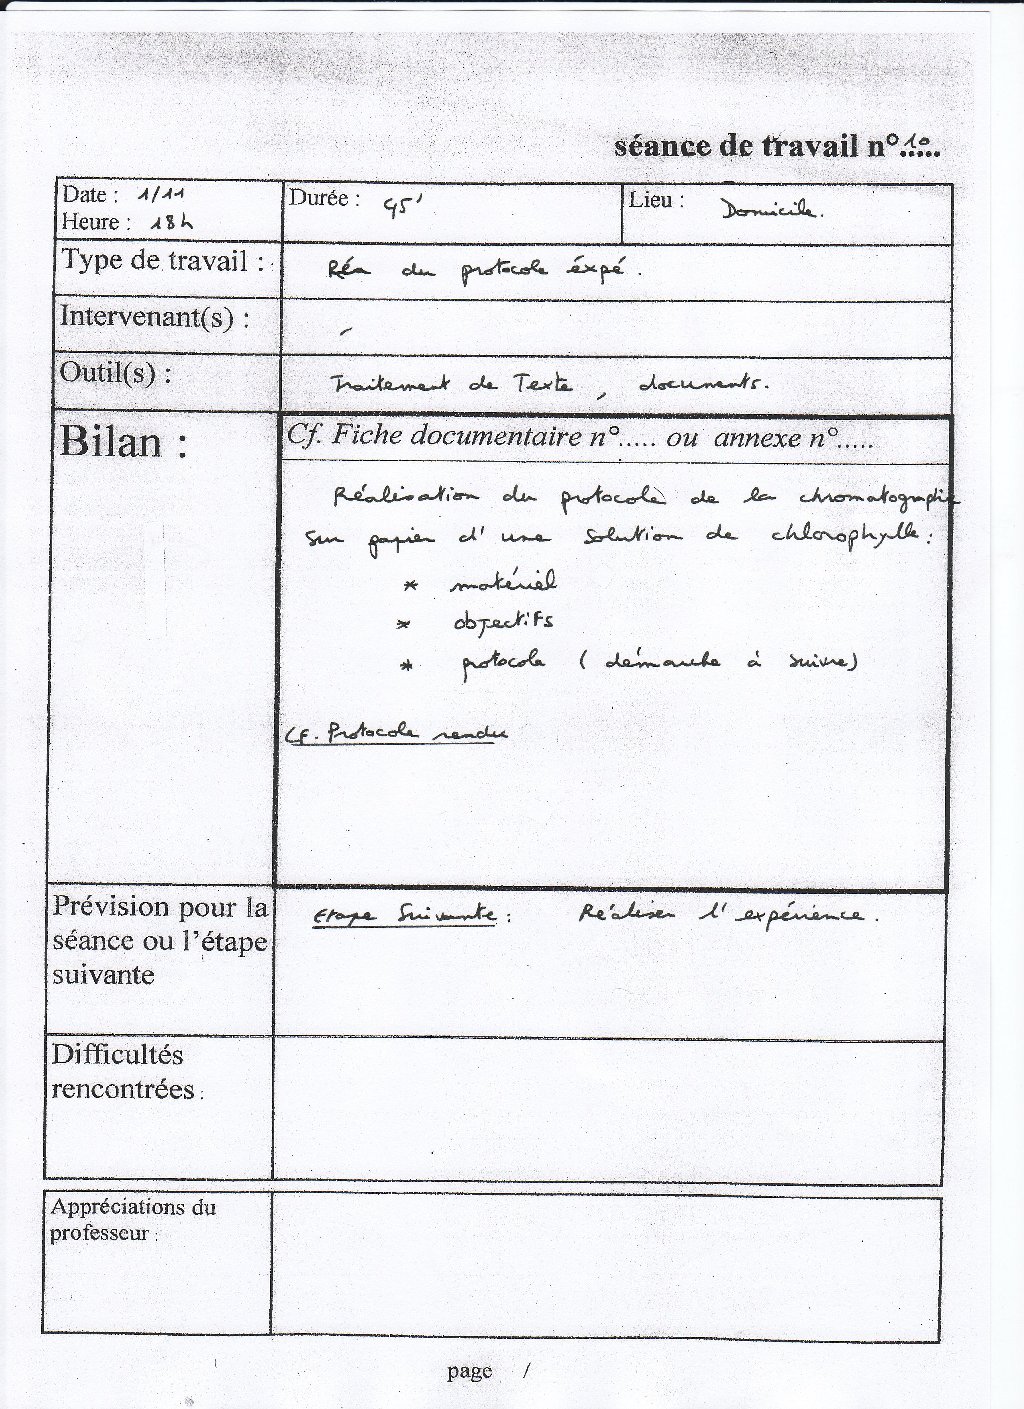 séance de travail n°10.....
Date : 1/11
Heure : 18h
Durée : 45'
Lieu : Domicile.
Type de travail : Réa du protocole éxpé.
Intervenant(s) :
Outil(s) : Traitement de Texte, documents.
Bilan :
Cf. Fiche documentaire n°..... ou annexe n°.....
Réalisation du protocole de la chromatographie
sur papier d'une solution de chlorophylle :
* matériel
* objectifs
* protocole (démarche à suivre)
Cf. Protocole rendu
Prévision pour la
séance ou l'étape
suivante
Etape Suivante : Réaliser l'expérience.
Difficultés
rencontrées :
Appréciations du
professeur :
page /